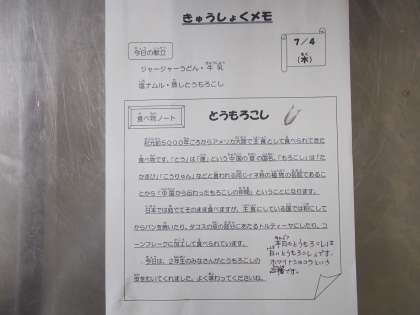 きゅうしょくメモ
7/4
(木)
今日の献立
ジャージャーうどん・牛乳
塩ナムル・蒸しとうもろこし
食べ物ノート
とうもろこし
紀元前5000年ごろからアメリカ大陸で主食として食べられてきた
食べ物です。「とう」は「唐」という中国の昔の国名、「もろこし」は「た
かきび」「こうりゃん」などと言われる同じイネ科の植物の名前であるこ
とから「中国から伝わったもろこしの仲間」ということになります。
日本ではゆでてそのまま食べますが、主食にしている国では粉にして
からパンを焼いたり、タコスの皮の部分にあたるトルティーヤにしたり、コ
ーンフレークに加工して食べられています。
今日は、2年生のみなさんがとうもろこしの
皮をむいてくれました。よく味わってくださいね。
本日のとうもろこしは
白いとうもろこしです。
ホワイトショコラという
品種です。